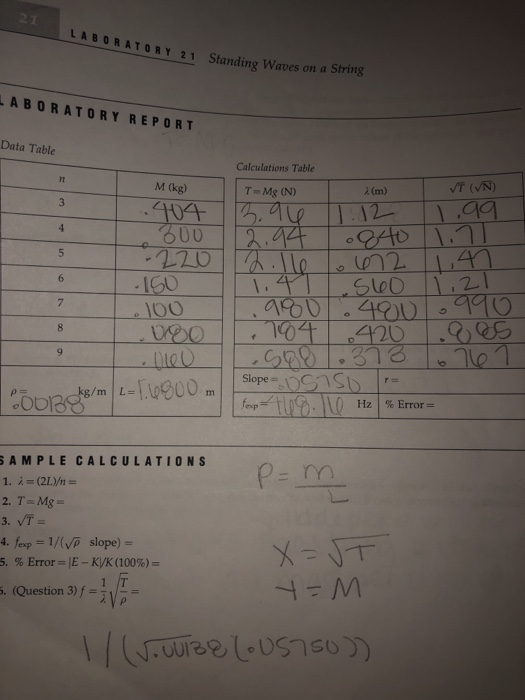 21
LABORATORY 21 Standing Waves on a String
LABORATORY REPORT
Data Table
Calculations Table
n M (kg) T = Mg (N) λ (m) √T (√N)
3 .404 3.96 1.12 1.99
4 .300 2.94 .840 1.71
5 .220 2.16 .672 1.47
6 .150 1.47 .560 1.21
7 .100 .980 .480 .990
8 .080 .784 .420 .885
9 .060 .588 .373 .767
Slope = .05750 r =
ρ = .00138 kg/m L = 1.6800 m
fexp = 468.16 Hz % Error =
SAMPLE CALCULATIONS
1. λ = (2L)/n =
2. T = Mg =
3. √T =
4. fexp = 1/(√ρ slope) =
5. % Error = |E − K|/K (100%) =
6. (Question 3) f = 1/λ √T/ρ =
P = m/L
X = √T
Y = M
1/(√.00138 (.05750))